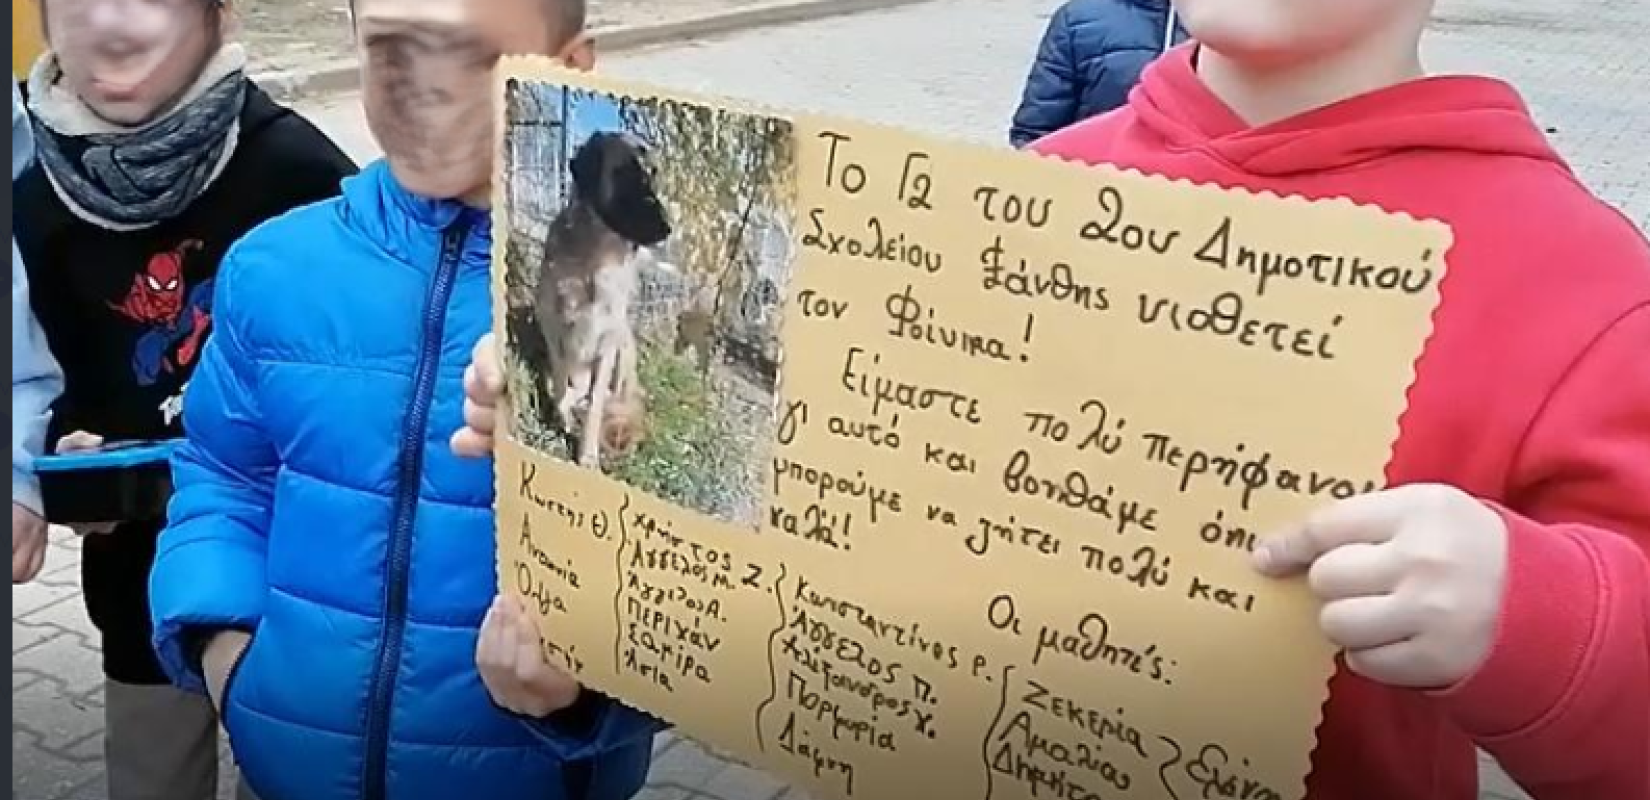 Το Γ2 του 2ου Δημοτικού
Σχολείου Ξάνθης υιοθετεί
τον Φοίνικα!
Είμαστε πολύ περήφανοι
γι αυτό και βοηθάμε όπως
μπορούμε να ζήσει πολύ και
καλά!
Οι μαθητές:
Κωστής Θ.
Αντωνία
Όλγα
Χρήστος Ζ.
Άγγελος Μ.
Άγγελος Α.
ΠΕΡΙΧΑΝ
ΣΑΜΙΡΑ
Άσια
Κωνσταντίνος Ρ.
Άγγελος Π.
Αλέξανδρος Χ.
Πορφυρία
Δάφνη
Ζεκερία
Αμαλία
Ελένη